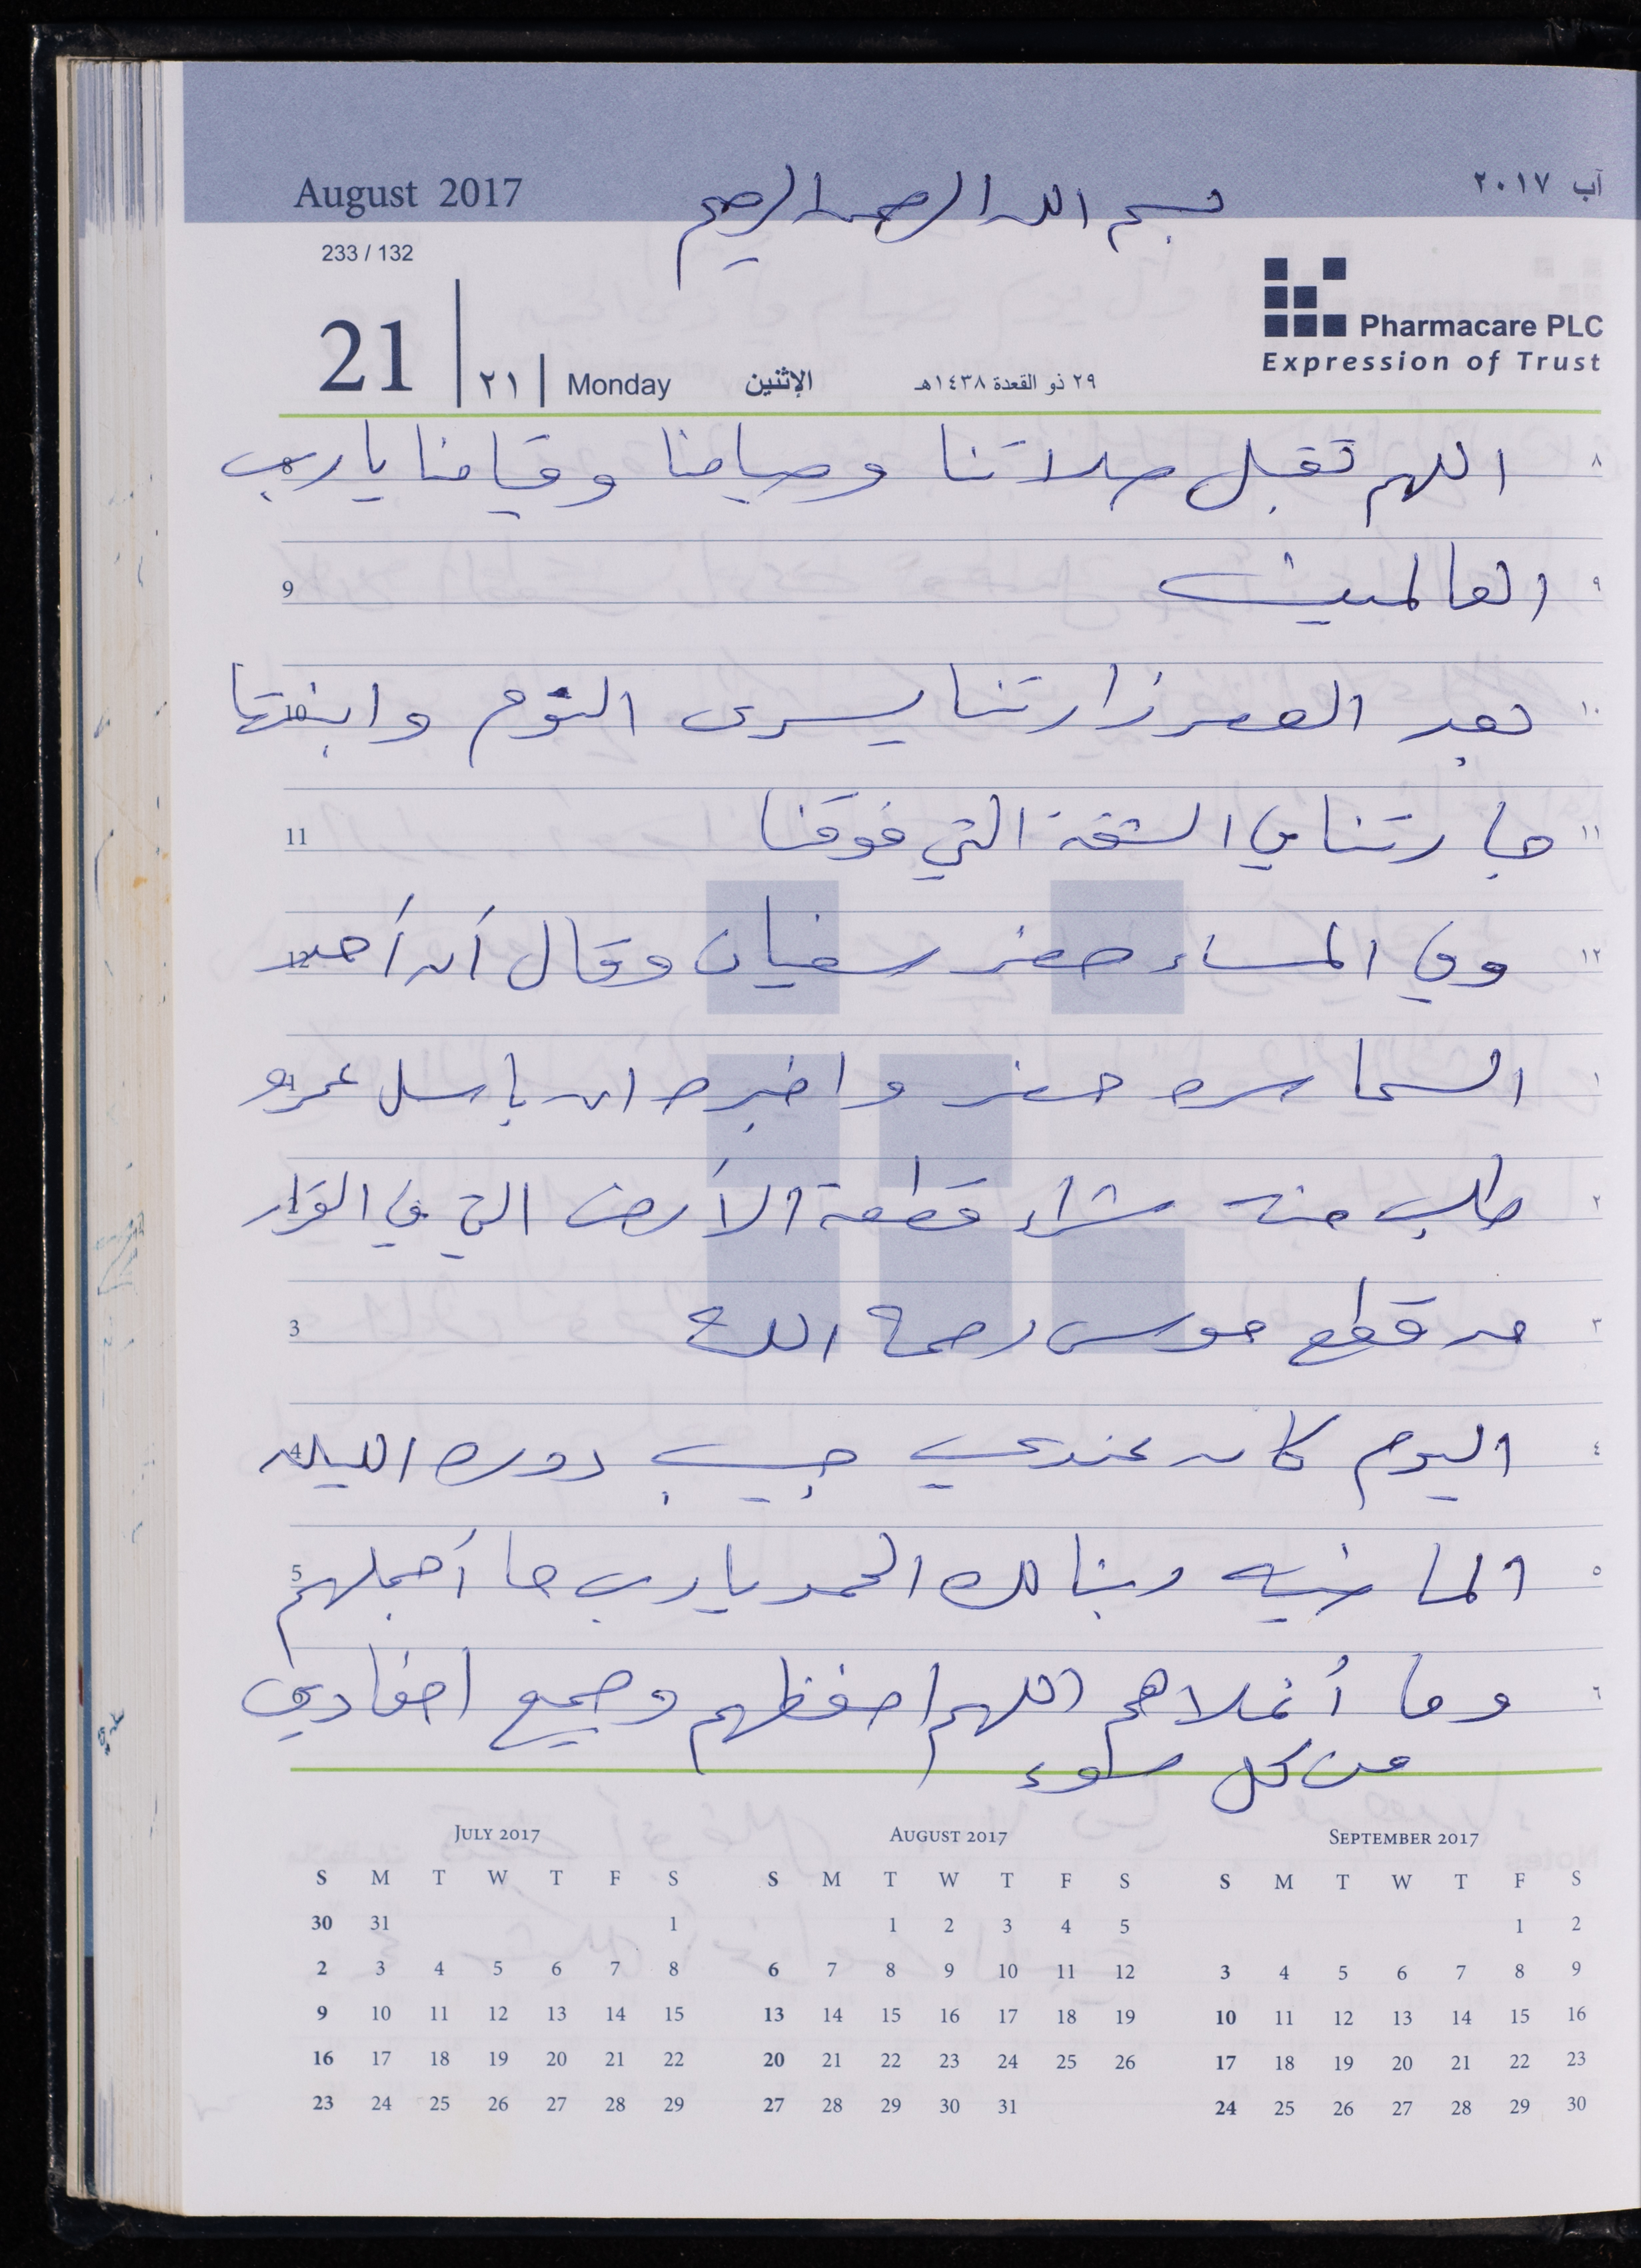 August 2017
آب ٢٠١٧
بسم الله الرحمن الرحيم
233 / 132
21 | ٢١ | Monday الإثنين ٢٩ ذو القعدة ١٤٣٨هـ
Pharmacare PLC
Expression of Trust
٨ اللهم تقبل صلاتنا وصيامنا وقيامنا يا رب
٩ العالمين 9
١٠ بعد العصر زارتنا يسرى التوم وابنتها 10
١١ جارتنا في الشقة التي فوقنا 11
١٢ وفي المساء حضر سفيان وقال أن أحد 12
١ السماسره حضر واخبره ان باسل عمرو 1
٢ طلب منه شراء قطعة الأرض التي في
٣ من قطع موسى رحمه الله 3
٤ اليوم كان عندي حبيب دوره الليله 4
٥ ربنا لك الحمد يا رب ما أجملهم 5
٦ وما أغلاهم اللهم احفظهم وجميع احفادي 6
من كل سوء
JULY 2017
S M T W T F S
30 31 1
2 3 4 5 6 7 8
9 10 11 12 13 14 15
16 17 18 19 20 21 22
23 24 25 26 27 28 29
AUGUST 2017
S M T W T F S
1 2 3 4 5
6 7 8 9 10 11 12
13 14 15 16 17 18 19
20 21 22 23 24 25 26
27 28 29 30 31
SEPTEMBER 2017
S M T W T F S
1 2
3 4 5 6 7 8 9
10 11 12 13 14 15 16
17 18 19 20 21 22 23
24 25 26 27 28 29 30